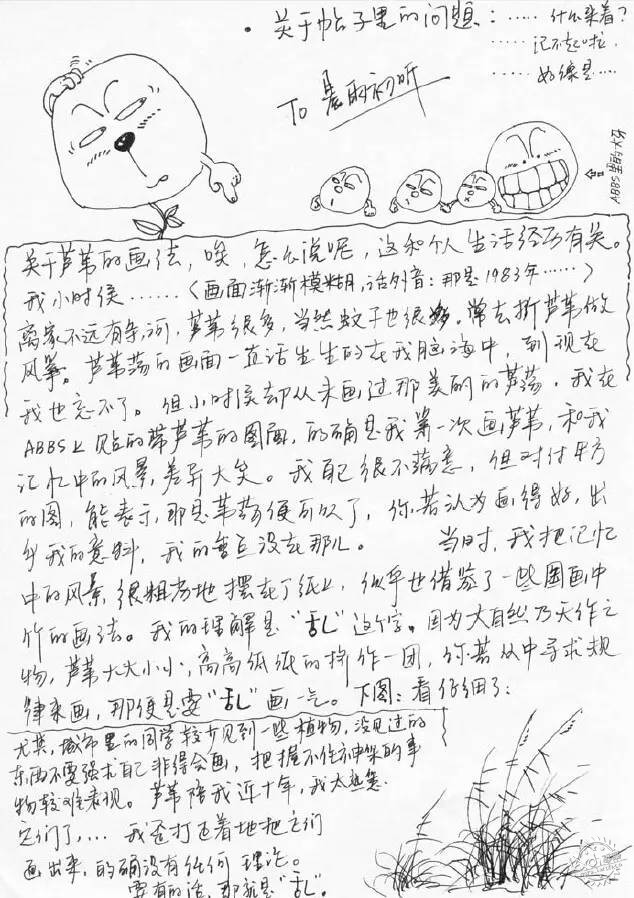 • 关于帖子里的问题：…… 什么来着？
…… 记不起啦，
…… 好像是……
To 晨雨初听
ABBS里的大牙
关于芦苇的画法，唉，怎么说呢，这和个人生活经历有关。
我小时侯……〈画面渐渐模糊，话外音：那是1983年……〉
离家不远有条河，芦苇很多，当然蚊子也很多。常去折芦苇做
风筝。芦苇荡的画面一直活生生的在我脑海中，到现在
我也忘不了。但小时侯却从未画过那美丽的芦荡，我在
ABBS上贴的带芦苇的图画，的确是我第一次画芦苇，和我
记忆中的风景差异大矣。我自己很不满意，但对付甲方
的图，能表示那是苇荡便可以了，你若认为画得好，出
乎我的意料，我的重点没在那儿。 当时，我把记忆
中的风景很粗劣地摆在了纸上，似乎也借鉴了一些国画中
竹的画法。我的理解是“乱”这个字。因为大自然乃天作之
物，芦苇大大小小，高高低低的挤作一团，你若从中寻求规
律来画，那便是要“乱”画一气。下图：看仔细了：
尤其，城市里的同学较少见到一些植物，没见过的
东西不要强求自己非得会画，把握不住神气的事
物较难表现。芦苇陪我近十年，我太熟悉
它们了，… 我歪打正着地把它们
画出来，的确没有任何理论。
要有的话，那就是“乱”。